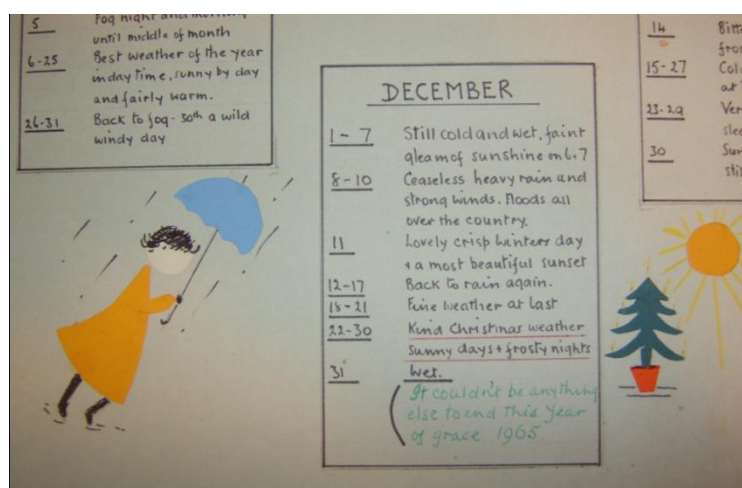 5 Fog night and morning
until middle of month
6-25 Best weather of the year
in day time, sunny by day
and fairly warm.
26-31 Back to fog - 30th a wild
windy day
DECEMBER
1 - 7 Still cold and wet, faint
gleam of sunshine on 6+7
8-10 Ceaseless heavy rain and
strong winds. Floods all
over the country.
11 Lovely crisp winters day
+ a most beautiful sunset
12-17 Back to rain again.
18-21 Fine weather at last
22-30 Kind Christmas weather
sunny days + frosty nights
31 Wet.
It couldn't be anything
else to end This Year
of grace 1965
14
15-27
23-29
30